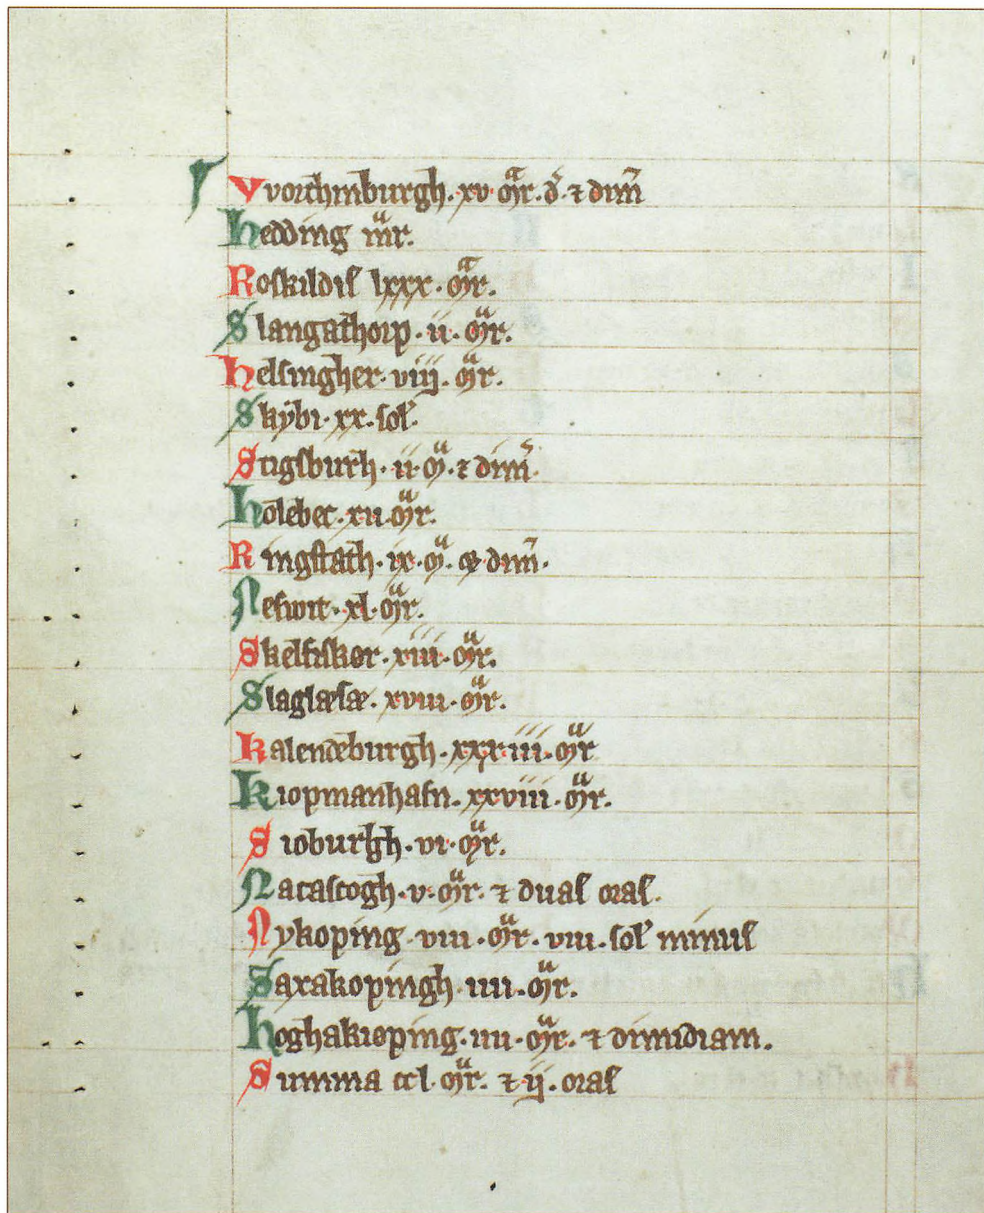 Vvorthinburgh. xv. mͣr. đ. ⁊ dim̃
Hedding mͣr.
Roſkildiſ lxxx. mͣr.
Slangathorp. ii. mͣr.
Helſingher. viij. mͣr.
Skẏbi. xx. ſol'.
Stigſburh. ii. mͣ. ⁊ dim̃.
Holebec. xii. mͣr.
Ringſtath. ix. mͣ. dim̃.
Neſwit. xl. mͣr.
Skelfiſkør. xiii. mͣr.
Slaglæſæ. xviii. mͣr.
Kalendeburgh. xxxiii. mͣr
Kiopmanhafn. xxviii. mͣr.
Sioburgh. vi. mͣr.
Nacaſcogh. v. mͣr. ⁊ duaſ oraſ.
Nykoping. viii. mͣr. viii. ſol' minuſ
Saxakopingh. iiii. mͣr.
Hoghakiøping. iii. mͣr. ⁊ dimidiam.
Summa ccl. mͣr. ⁊ ij. oraſ